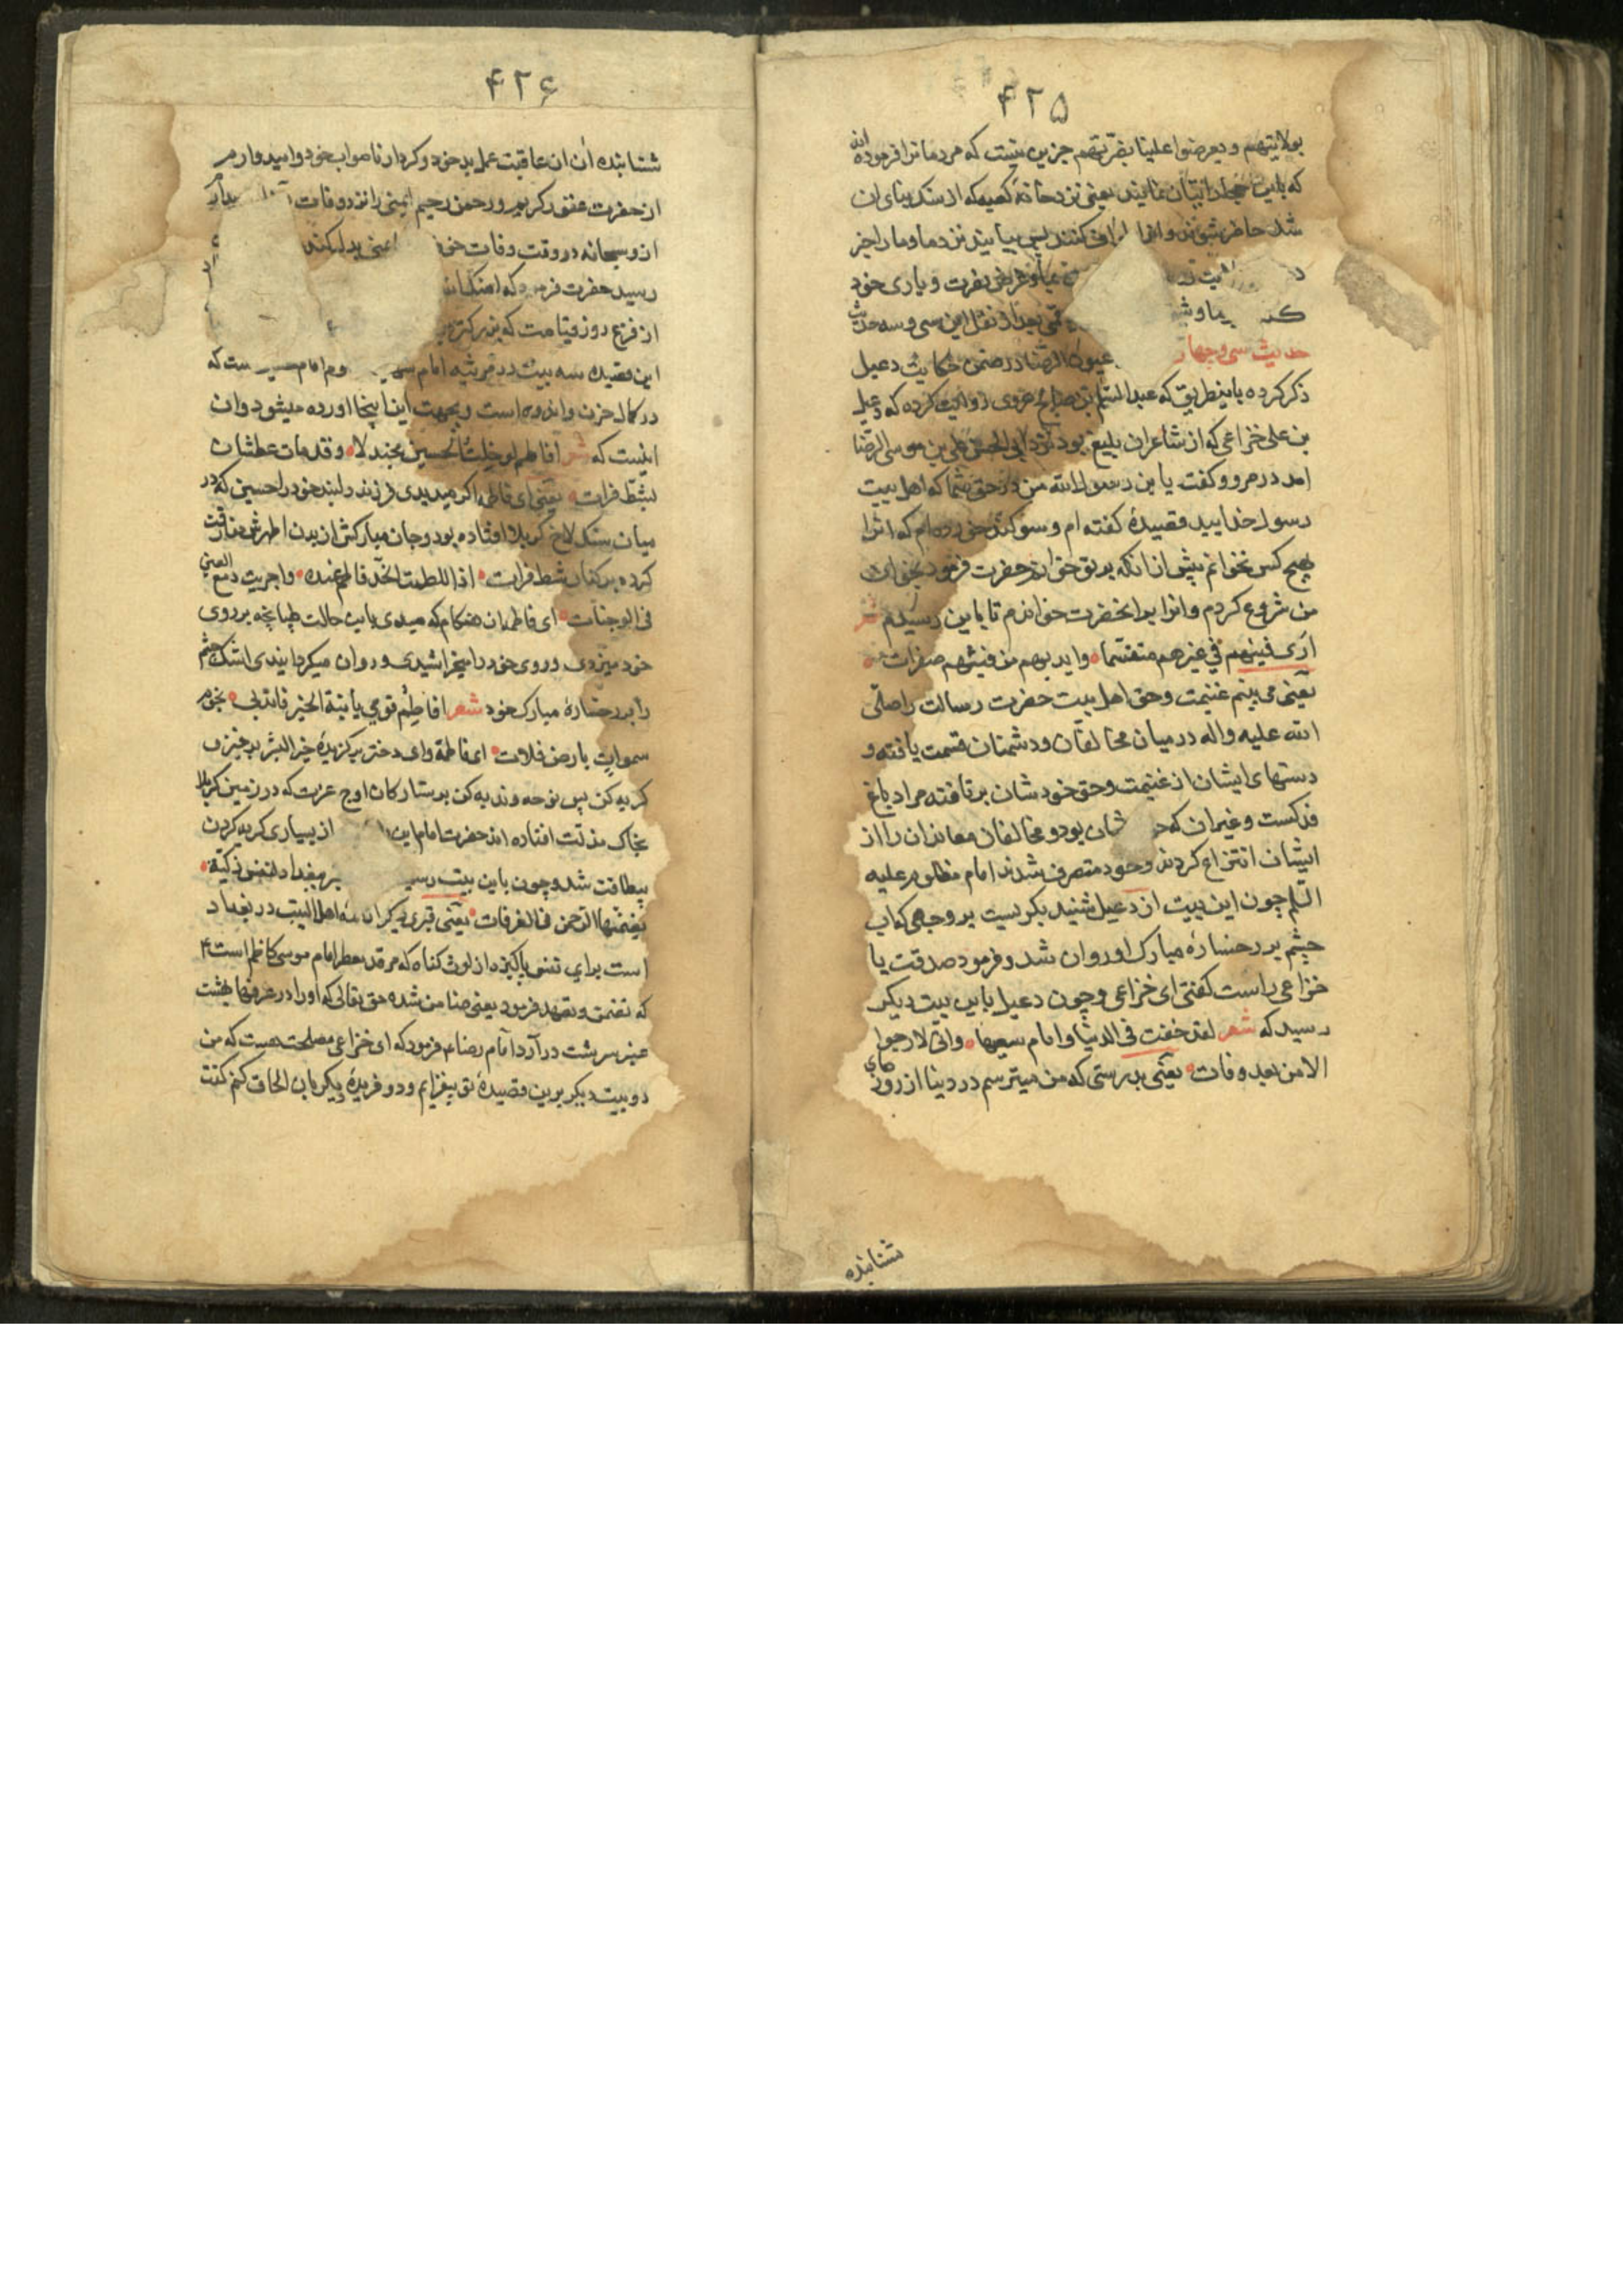 ۴۲۵
بولایتهم و یعرضوا علینا نصرتهم جزین نیست که مردمانرا فرموده‌اند
که باین اتیان نمایند یعنی نزد خانه کعبه که از سنک بنای ان
شد حاضر شوند و انرا طواف کنند پس بیایند نزد ما و ما را خبر
نصرت و یاری خود
بعد از نقل این سی و سه حدیث
حدیث سی و چهار عیون الرضا در ضمن حکایت دعبل
ذکر کرده باینطریق که عبد السلم بن صالح هروی روایت کرده که دعبل
بن علی خزاعی که از شاعران بلیغ بود نزد ابی الحسن علی بن موسی الرضا
امد در مرو و کفت یا بن رسول الله من در حق شما که اهل بیت
رسول خدایید قصیدهٔ کفته ام و سوکند خورده ام که انرا
بهیچ کس نخوانم پیش از انکه بر تو خوانم حضرت فرمود بخوان
من شروع کردم و انرا بر انحضرت خواندم تا باین رسیدم شعر
اری فیئهم فی غیرهم متقسما و ایدیهم من فیئهم صفرات
یعنی می بینم غنیمت و حق اهل بیت حضرت رسالت را صلی
الله علیه و اله در میان مخالفان و دشمنان قسمت یافته و
دستهای ایشان از غنیمت و حق خودشان بر تافته مراد باغ
فدکست و غیر ان که شان بود و مخالفان معاندان را از
ایشان انتزاع کردند و خود متصرف شدند امام مظلوم علیه
السلم چون این بیت از دعبل شنید بکریست بر وجهی که اب
چشم بر رخسارهٔ مبارک او روان شد و فرمود صدقت یا
خزاعی راست کفتی ای خزاعی و چون دعبل باین بیت دیکر
رسید که شعر لقد خفت فی الدنیا و ایام سعیها و انی لارجوا
الامن بعد وفات یعنی بدرستی که من میترسم در دنیا از روزهای
شتابنده
۴۲۶
شتابنده ان از عاقبت عمل بد خود و کردار ناصواب خود و امیدوارم
از حضرت عفو کریم و رحمن رحیم ایمنی را نزد وفات
از و سبحانه در وقت وفات خوف
رسید حضرت فرمود که امنک الله
از فزع روز قیامت که بزرکتر
این قصیده سه بیت در مرثیه امام و امام است که
در کمال حزن و اندوه است و بجهت این اینجا اورده میشود و ان
اینست که شعر افاطم لو خلت الحسین مجدلا و قد مات عطشان
بشط فرات یعنی ای فاطمه اکر میدیدی فرزند دلبند خود را حسین که در
میان سنک لاخ کربلا افتاده بود و جان مبارکش از بدن اطهرش مفارقت
کرده بر کنار شط فرات اذا للطمت الخد فاطم عنده و اجریت دمع العین
فی الوجنات ای فاطمه ان هنکام که میدی باین حالت طپانچه بر روی
خود میزدی و روی خود را میخراشیدی و روان میکردانیدی اشک چشم
را بر رخسارهٔ مبارک خود شعر افاطم قومی یا بنة الخیر فاندبی نجوم
سموات بارض فلات ای فاطمه وای دختر برکزیدهٔ خیر البشر برخیز و
کریه کن پس نوحه و ندبه کن بر ستارکان اوج عزت که در زمین کربلا
بخاک مذلت افتاده اند حضرت امام از بسیاری کریه کردن
بیطاقت شد و چون باین بیت و قبر ببغداد لنفس زکیة
تضمنها الرحمن فی الغرفات یعنی قبری دیکر از اهل البیت در بغداد
است برای نفس پاکیزه از لوث کناه که مرقد معطر امام موسی کاظم است ۴
که تضمن و تعهد فرمود یعنی ضامن شده حق تعالی که او را در غرفها بهشت
عنبر سرشت در آرد امام رضا ع فرمود که ای خزاعی مصلحت هست که من
دو بیت دیکر برین قصیدهٔ تو بیفزایم و دو فریدهٔ دیکر بان الحاق کنم کفت